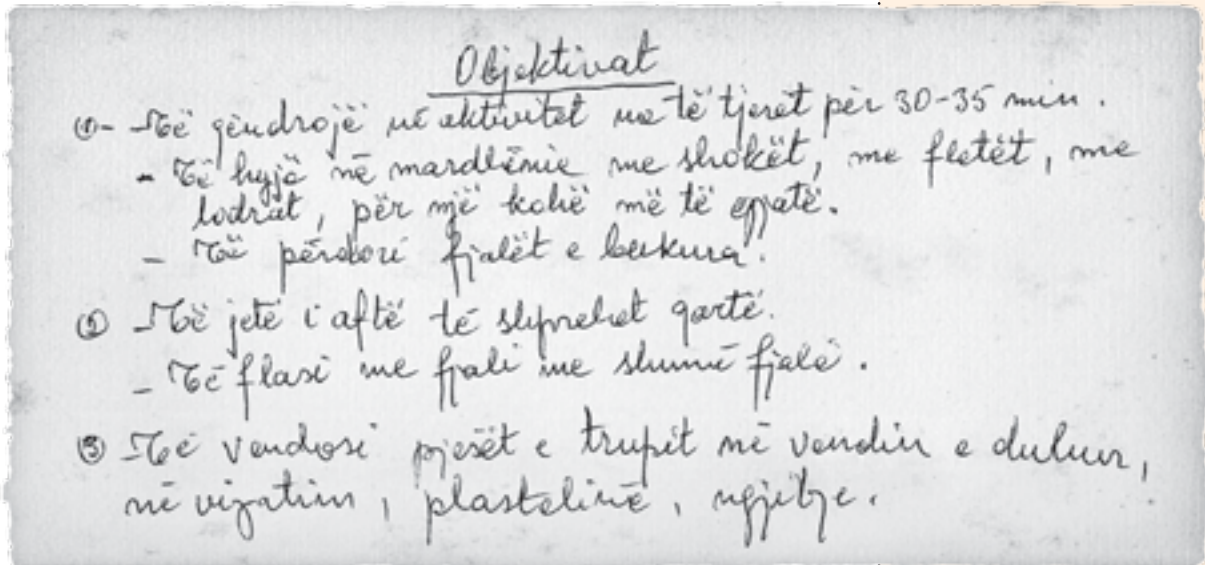 Objektivat
①- -Të qëndrojë në aktivitet me të tjerët për 30-35 min.
- Të hyjë në mardhënie me shokët, me fletët, me
lodrat, për një kohë më të gjatë.
- Të përdori fjalët e bukura.
② -Të jetë i aftë të shprehet qartë.
- Të flasi me fjali me shumë fjalë.
③ Të vendosi pjesët e trupit në vendin e duhur,
në vizatim, plastelinë, ngjitje.